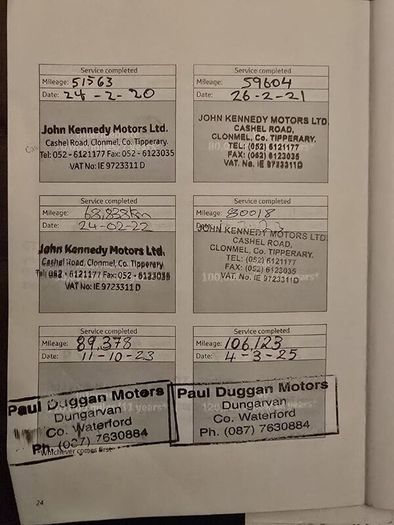 Service completed
Mileage: 51563
Date: 24-2-20
John Kennedy Motors Ltd.
Cashel Road, Clonmel, Co. Tipperary.
Tel: 052 - 6121177 Fax: 052 - 6123035
VAT No: IE 9723311 D
Service completed
Mileage: 59604
Date: 26-2-21
JOHN KENNEDY MOTORS LTD
CASHEL ROAD,
CLONMEL, Co. TIPPERARY.
TEL: (052) 6121177
FAX: (052) 6123035
VAT. No. IE 9723311D
Service completed
Mileage: 68,838km
Date: 24-02-22
John Kennedy Motors Ltd.
Cashel Road, Clonmel, Co. Tipperary
Tel: 052 - 6121177 Fax: 052 - 6123035
VAT No: IE 9723311 D
Service completed
Mileage: 80018
Date:
JOHN KENNEDY MOTORS LTD.
CASHEL ROAD,
CLONMEL, Co. TIPPERARY.
TEL: (052) 6121177
FAX: (052) 6123035
VAT. No. IE 9723311D
Service completed
Mileage: 89,378
Date: 11-10-23
Paul Duggan Motors
Dungarvan
Co. Waterford
Ph. (087) 7630884
Service completed
Mileage: 106,123
Date: 4-3-25
Paul Duggan Motors
Dungarvan
Co. Waterford
Ph. (087) 7630884
Whichever comes first
24